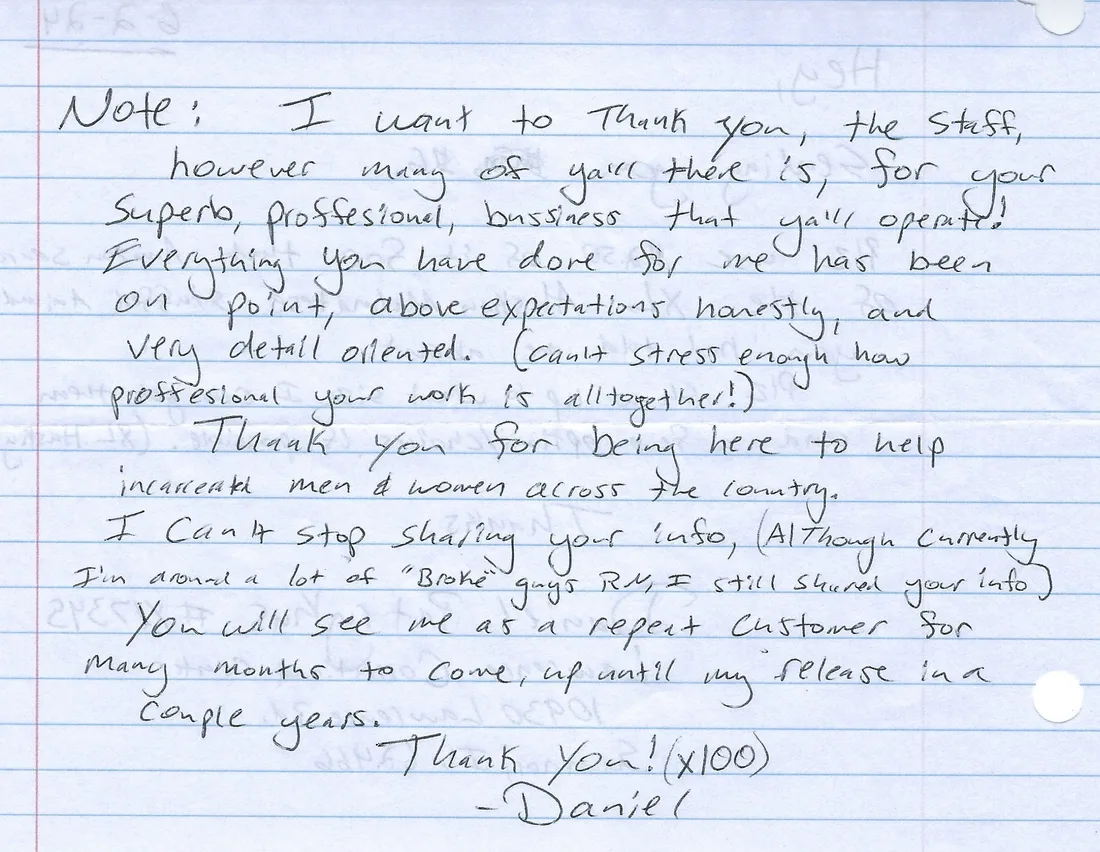 Note: I want to Thank you, the Staff,
however many of ya'll there is, for your
Superb, proffesional, bussiness that ya'll operate!
Everything you have done for me has been
on point, above expectations honestly, and
very detail oriented. (can't stress enough how
proffesional your work is alltogether!)
Thank you for being here to help
incarcerated men & women across the country.
I Can't stop sharing your info, (Al Though currently
I'm around a lot of "Broke" guys RN, I still shared your info)
You will see me as a repeat customer for
many months to come, up until my release in a
couple years.
Thank you! (x100)
-Daniel